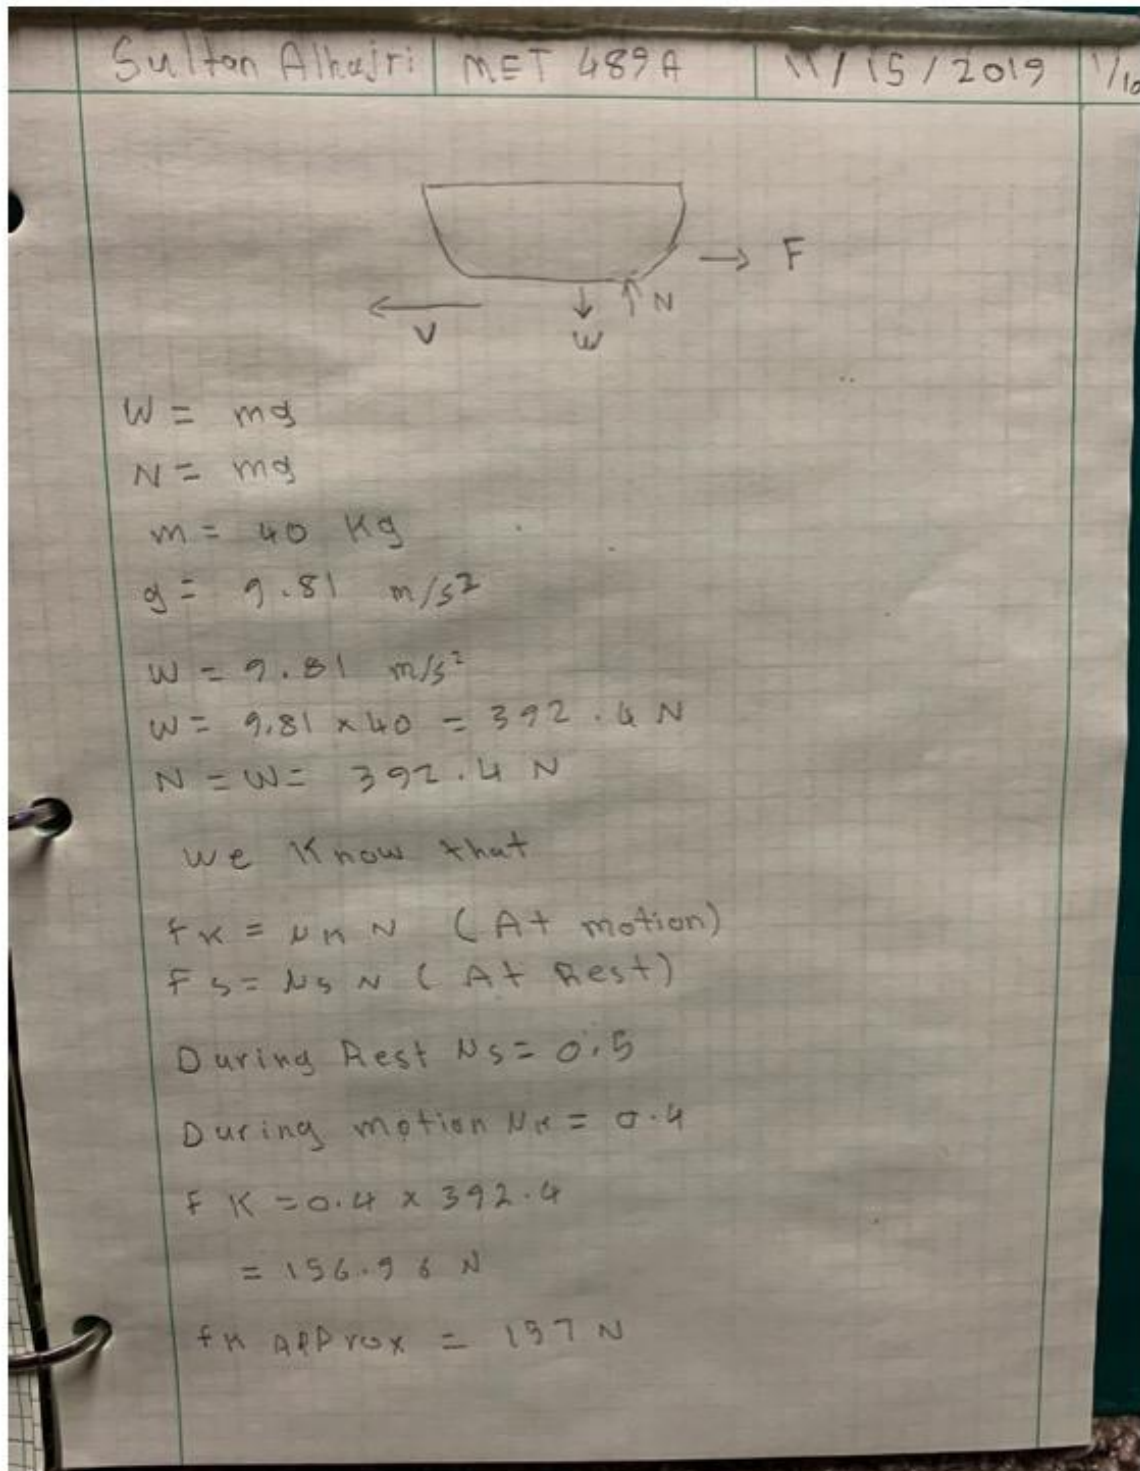 Sultan Alhajri MET 489A 11/15/2019 1/10
F
N
V
W
W = mg
N = mg
m = 40 Kg
g = 9.81 m/s²
W = 9.81 m/s²
W = 9.81 x 40 = 392.4 N
N = W = 392.4 N
We Know that
fK = μK N (At motion)
Fs = μs N (At Rest)
During Rest μs = 0.5
During motion μK = 0.4
FK = 0.4 x 392.4
= 156.96 N
fK APProx = 157 N